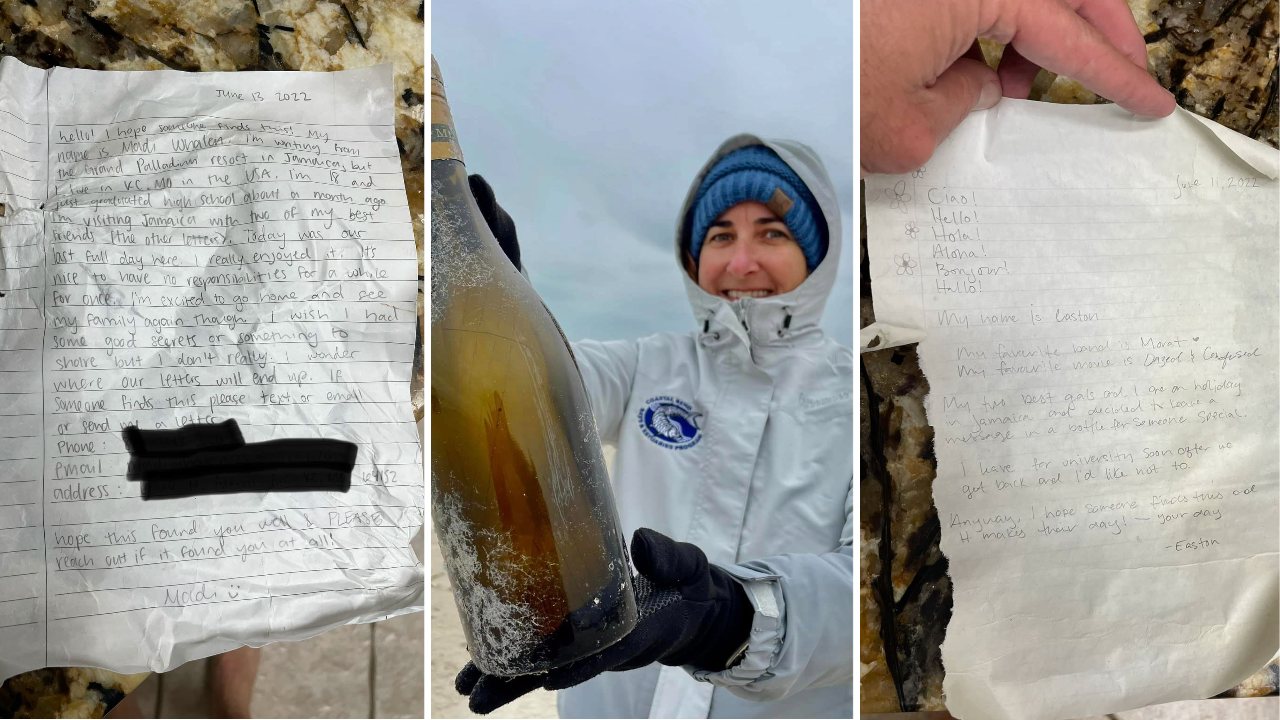 June 13 2022
hello! I hope someone finds this. My
name is Madi Whalen. I'm writing from
the Grand Palladium resort in Jamaica, but
I live in KC, MO in the USA. I'm 18 and
just graduated high school about a month ago.
I'm visiting Jamaica with two of my best
friends (the other letters). Today was our
last full day here. I really enjoyed it. It's
nice to have no responsibilities for a while
for once. I'm excited to go home and see
my family again though. I wish I had
some good secrets or something to
share but I don't really. I wonder
where our letters will end up. If
someone finds this please text or email
or send me a letter
Phone:
email
address: 64152
hope this found you well & PLEASE
reach out if it found you at all!
Madi
COASTAL BEND
BAYS & ESTUARIES PROGRAM
June 11, 2022
Ciao!
Hello!
Hola!
Aloha!
Bonjour!
Hallo!
My name is Easton
My favourite band is Morat
My favourite movie is Dazed & Confused
My two best gals and I are on holiday
in Jamaica and decided to leave a
message in a bottle for someone special.
I leave for university soon after we
get back and I'd like not to.
Anyway, I hope someone finds this and
it makes their day! — your day
-Easton